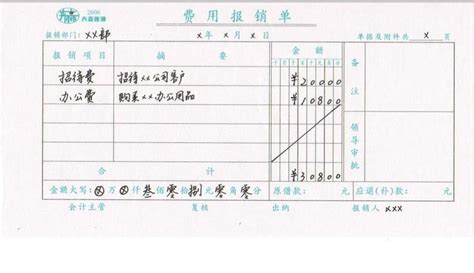 2006 费用报销单
报销部门：XX部 X年X月X日 单据及附件共X页
报销项目 摘要 金额 备注
十万千百十元角分
招待费 招待xx公司客户 ¥20000
办公费 购买xx办公用品 ¥10800
领导审批
合计 ¥30800
金额大写：ⓧ万ⓧ仟叁佰零拾捌元零角零分 原借款：元 应退（补）款：元
会计主管 复核 出纳 报销人 xxx